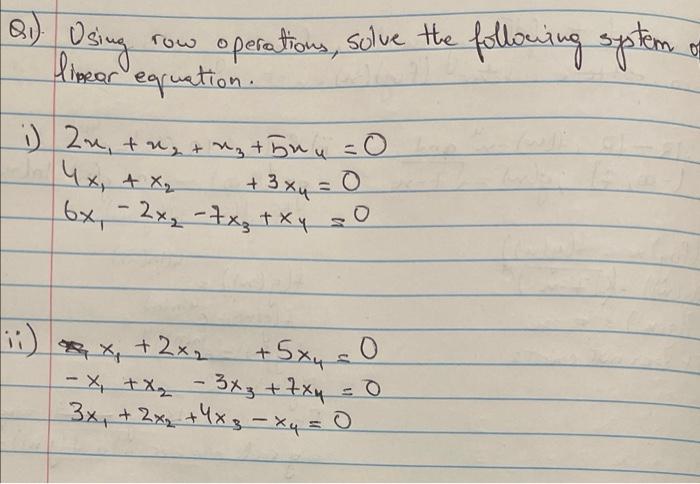 Q1). Using row operations, solve the following system of
linear equation.
i) 2x₁ + x₂ + x₃ + 5x₄ = 0
4x₁ + x₂ + 3x₄ = 0
6x₁ - 2x₂ - 7x₃ + x₄ = 0
ii) x₁ + 2x₂ + 5x₄ = 0
-x₁ + x₂ - 3x₃ + 7x₄ = 0
3x₁ + 2x₂ + 4x₃ - x₄ = 0